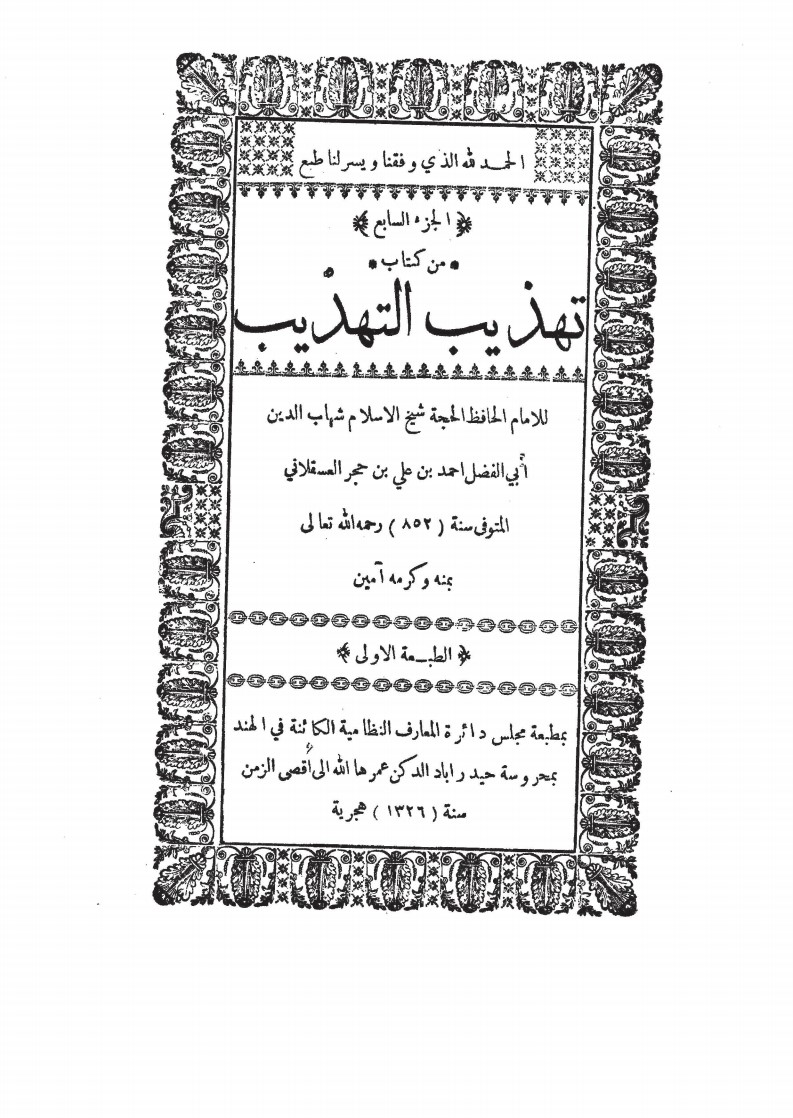 الحمد لله الذي وفقنا ويسر لنا طبع
الجزء السابع
من كتاب
تهذيب التهذيب
للامام الحافظ الحجة شيخ الاسلام شهاب الدين
أبي الفضل احمد بن علي بن حجر العسقلاني
المتوفى سنة ( ٨٥٢ ) رحمه الله تعالى
بمنه وكرمه آمين
الطبعة الاولى
بمطبعة مجلس دائرة المعارف النظامية الكائنة في الهند
بمحروسة حيدراباد الدكن عمرها الله الى أقصى الزمن
سنة ( ١٣٢٦ ) هجرية